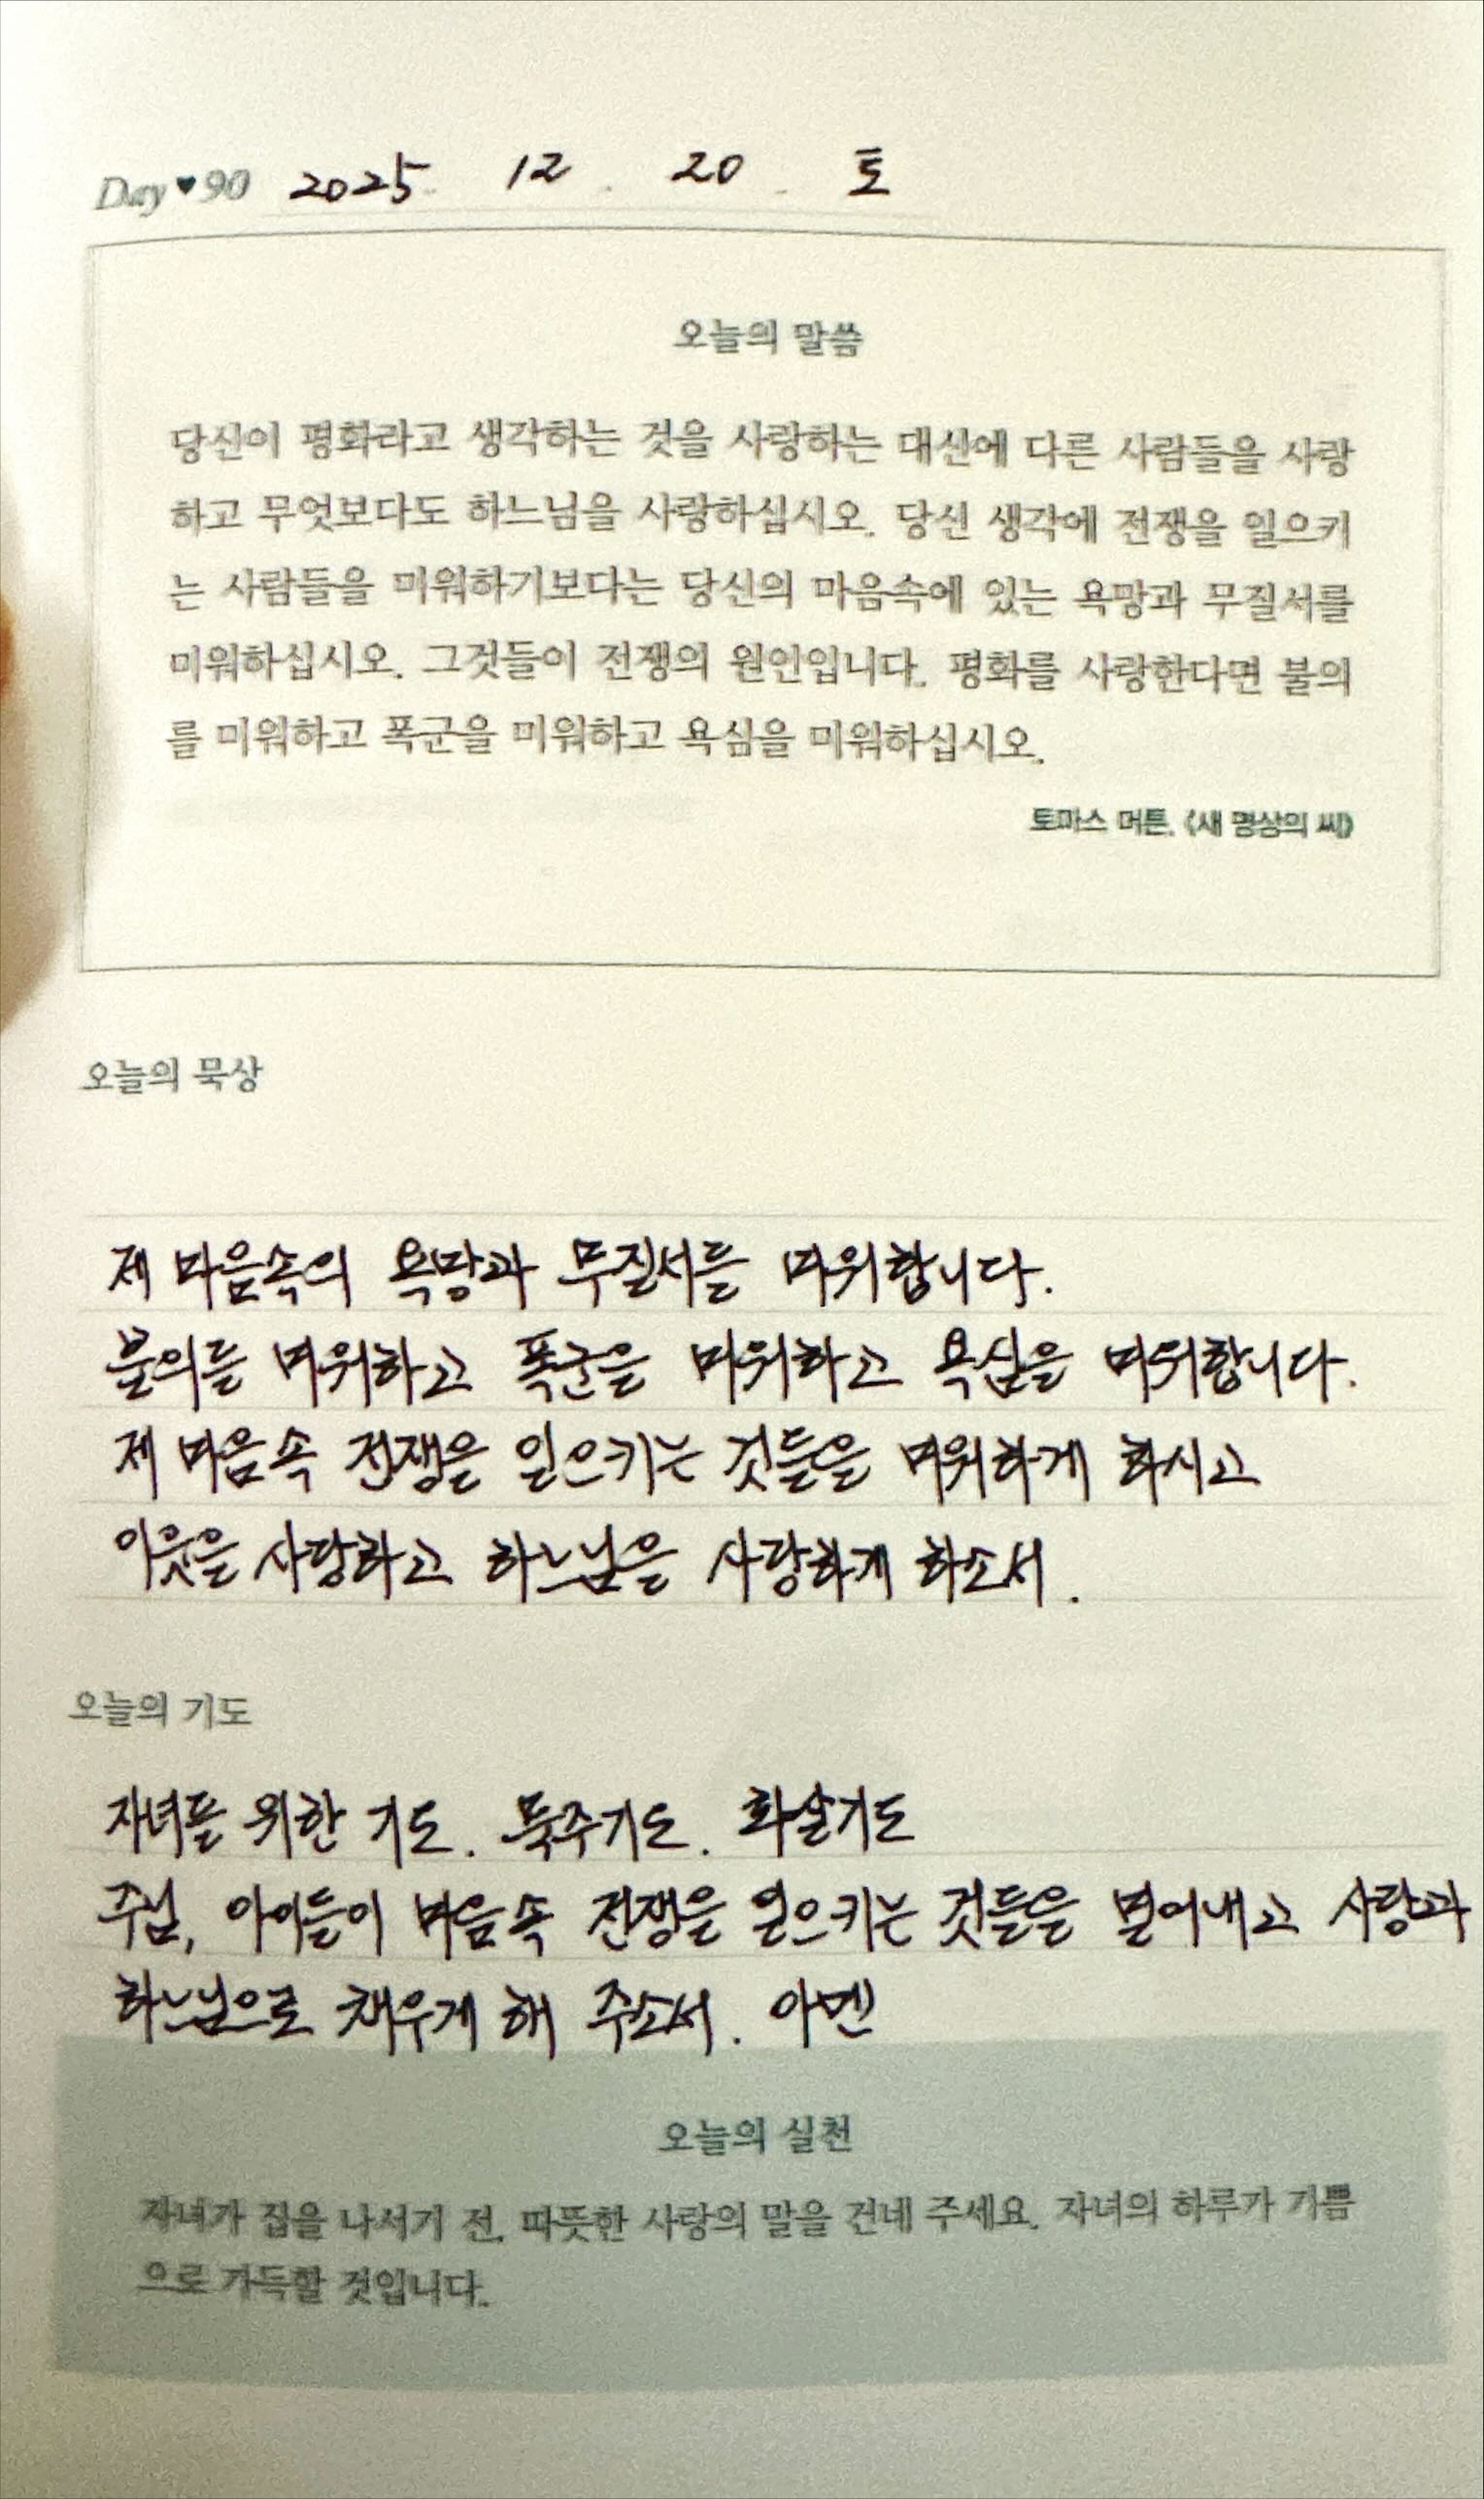 Day♥90 2025. 12. 20. 토
오늘의 말씀
당신이 평화라고 생각하는 것을 사랑하는 대신에 다른 사람들을 사랑
하고 무엇보다도 하느님을 사랑하십시오. 당신 생각에 전쟁을 일으키
는 사람들을 미워하기보다는 당신의 마음속에 있는 욕망과 무질서를
미워하십시오. 그것들이 전쟁의 원인입니다. 평화를 사랑한다면 불의
를 미워하고 폭군을 미워하고 욕심을 미워하십시오.
토마스 머튼, 《새 명상의 씨》
오늘의 묵상
제 마음속의 욕망과 무질서를 미워합니다.
불의를 미워하고 폭군을 미워하고 욕심을 미워합니다.
제 마음속 전쟁을 일으키는 것들을 미워하게 하시고
이웃을 사랑하고 하느님을 사랑하게 하소서.
오늘의 기도
자녀를 위한 기도. 묵주기도. 화살기도
주님, 아이들이 마음속 전쟁을 일으키는 것들을 덜어내고 사랑과
하느님으로 채우게 해 주소서. 아멘
오늘의 실천
자녀가 집을 나서기 전, 따뜻한 사랑의 말을 건네 주세요. 자녀의 하루가 기쁨
으로 가득할 것입니다.